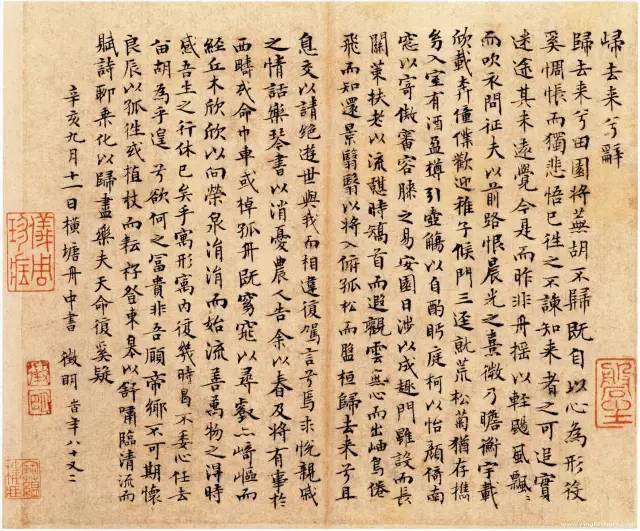 歸去来兮辭
歸去来兮田園将蕪胡不歸既自以心為形役
奚惆悵而獨悲悟已往之不諫知来者之可追實
迷途其未遠覺今是而昨非舟摇以輕颺風飄〻
而吹衣問征夫以前路恨晨光之熹微乃瞻衡宇載
欣載奔僮僕歡迎稚子候門三逕就荒松菊猶存攜
幼入室有酒盈樽引壺觴以自酌眄庭柯以怡顔倚南
窓以寄傲審容膝之易安園日涉以成趣門雖設而長
關策扶老以流憩時矯首而遐觀雲無心而出岫鳥倦
飛而知還景翳翳以将入孤松而盤桓歸去来兮且
息交以請絶遊世與我而相違復駕言兮焉求悦親戚
之情話樂琴書以消憂農人告余以春及将有事於
西疇或命巾車或棹孤舟既窈窕以尋壑亦崎嶇而
經丘木欣欣以向榮泉涓涓而始流善萬物之得時
感吾生之行休已矣乎寓形宇内復幾時曷不委心任去
留胡為乎遑兮欲何之富貴非吾願帝鄉不可期懷
良辰以孤往或植杖而耘耔登東皋以舒嘯臨清流而
賦詩聊乗化以歸盡樂夫天命復奚疑
辛亥九月十一日横塘舟中書 徵明 年八十又二
儀周珍藏
徵明